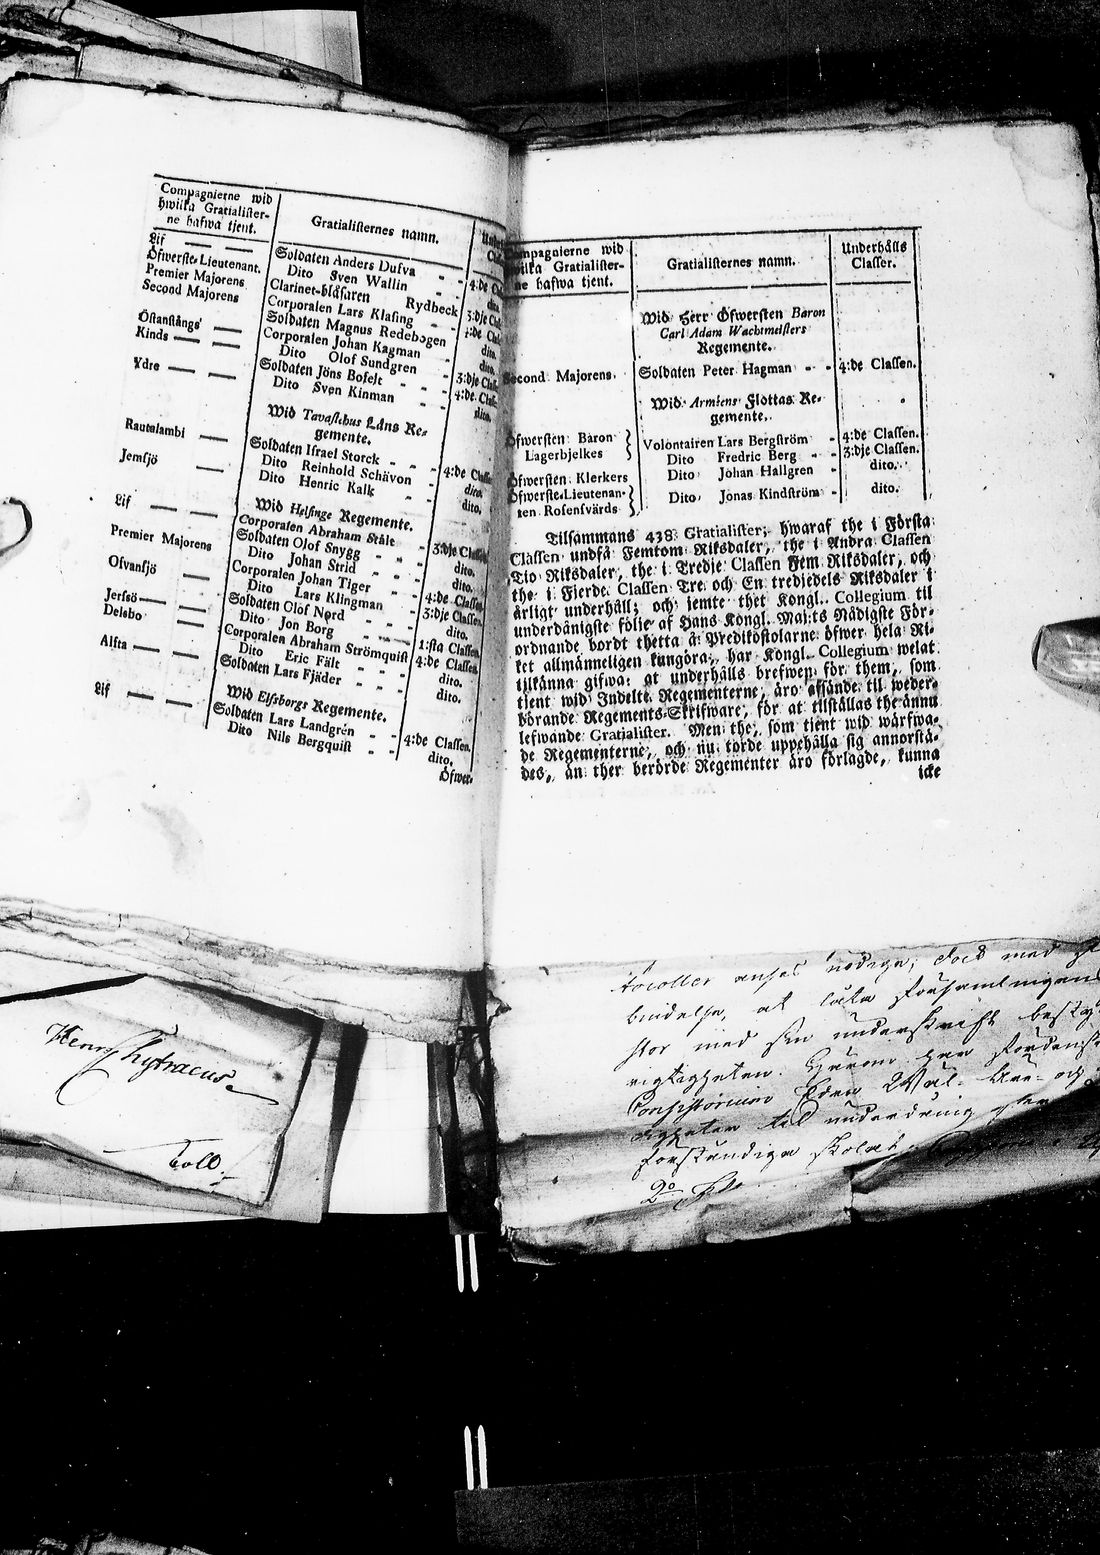 Compagnierne wid
hwilka Gratialister-
ne hafwa tjent.
Gratialisternes namn.
Lif — — Soldaten Anders Dufva - - 4:de
Öfwerste-Lieutenant. Dito Sven Wallin - - dito.
Premier Majorens Clarinet-blåsaren Rydbeck 3:dje
Second Majorens Corporalen Lars Klasing - -
Soldaten Magnus Redebogen dito.
Östanstångs — Corporalen Johan Kagman - dito.
Kinds — — Dito Olof Sundgren -
Soldaten Jöns Bofelt - - - 3:dje
Ydre — — Dito Sven Kinman - - 4:de
dito.
Wid Tavastehus Läns Re-
gemente.
Rautalambi — Soldaten Israel Storck - - - 4:de Classen
Dito Reinhold Schävon - dito.
Jemsjö — Dito Henric Kalk - - dito.
Wid Helsinge Regemente.
Lif — — Corporalen Abraham Stålt - - 3:dje Classen
Soldaten Olof Snygg - - - dito.
Premier Majorens Dito Johan Strid - - - dito.
Corporalen Johan Tiger - - 4:de Classen
Ofvansjö — Dito Lars Klingman - 3:dje Classen.
Soldaten Olof Nord - - - dito.
Jerfsö — — Dito Jon Borg - - - 1:sta Classen.
Delsbo — Corporalen Abraham Strömquist 4:de Classen
Dito Eric Fält - - - dito.
Alfta — — Soldaten Lars Fjäder - - - dito.
Wid Elfsborgs Regemente.
Lif — — Soldaten Lars Landgrén - - 4:de Classen.
Dito Nils Bergquist - - dito.
Öfwer-
Compagnierne wid
hwilka Gratialister-
ne hafwa tjent.
Gratialisternes namn.
Underhålls
Classer.
Wid Herr Öfwersten Baron
Carl Adam Wachtmeisters
Regemente.
Second Majorens. Soldaten Peter Hagman - - 4:de Classen.
Wid Armeens Flottas Re-
gemente.
Öfwersten Baron Volontairen Lars Bergström - 4:de Classen.
Lagerbjelkes Dito Fredric Berg - - 3:dje Classen.
Öfwersten Klerkers Dito Johan Hallgren - dito.
Öfwerste-Lieutenan-
ten Rosensvärds Dito Jonas Kindström - dito.
Tilsammans 438 Gratialister; hwaraf the i Första
Classen undfå Femtom Riksdaler, the i Andra Classen
Tio Riksdaler, the i Tredje Classen Fem Riksdaler, och
the i Fjerde Classen Tre och En tredjedels Riksdaler i
årligt underhåll; och jemte thet Kongl. Collegium til
underdånigste följe af Hans Kongl. Maj:ts Nådigste För-
ordnande bordt thetta å Predikostolarne öfwer hela Ri-
ket allmänneligen kungöra, har Kongl. Collegium welat
tilkänna gifwa: at underhålls brefwen för them, som
tjent wid Indelte Regementerne, äro afsände til weder-
börande Regements-Skrifware, för at tilställas the ännu
lefwande Gratialister. Men the, som tjent wid wärfwa-
de Regementerne, och nu torde uppehålla sig annorstä-
des, än ther berörde Regementer äro förlagde, kunna
icke
Chytraeus
Toll
anses nödige, dock med
bindelse, at låta församlingens
med sin underskrift
rigtigheten.
Consistorium Eder
til underdånig
skolat